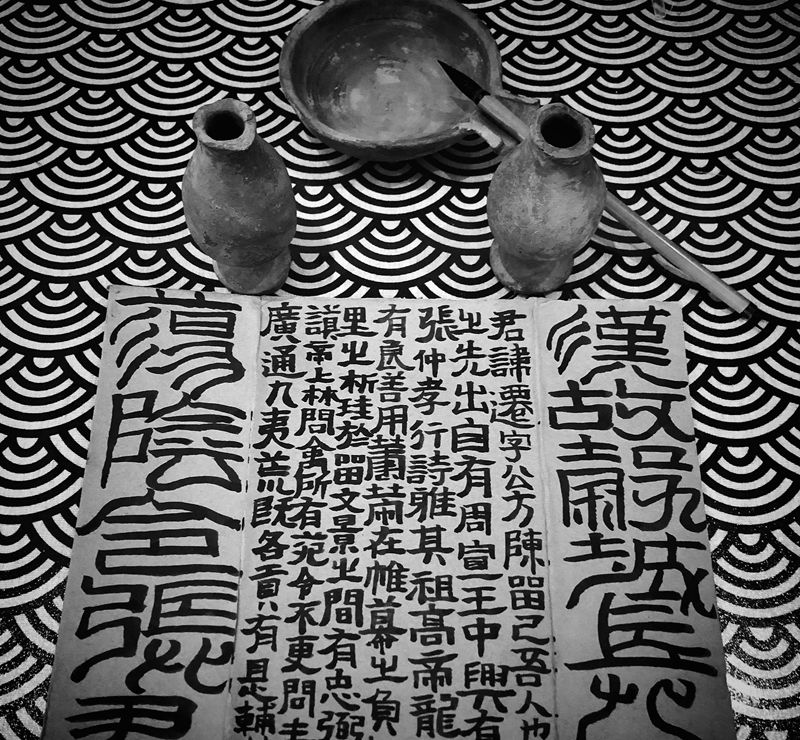 漢故穀城長
君諱遷字公方陳留己吾人也
之先出自有周宣王中興有
張仲孝行詩雅其祖高帝龍
有良善用在帷幕之負
里之析珪於留文景之間有忠弼
謨帝上林問禽所有苑令不更問
廣通九夷荒既各貢有是輔
蕩陰令張君